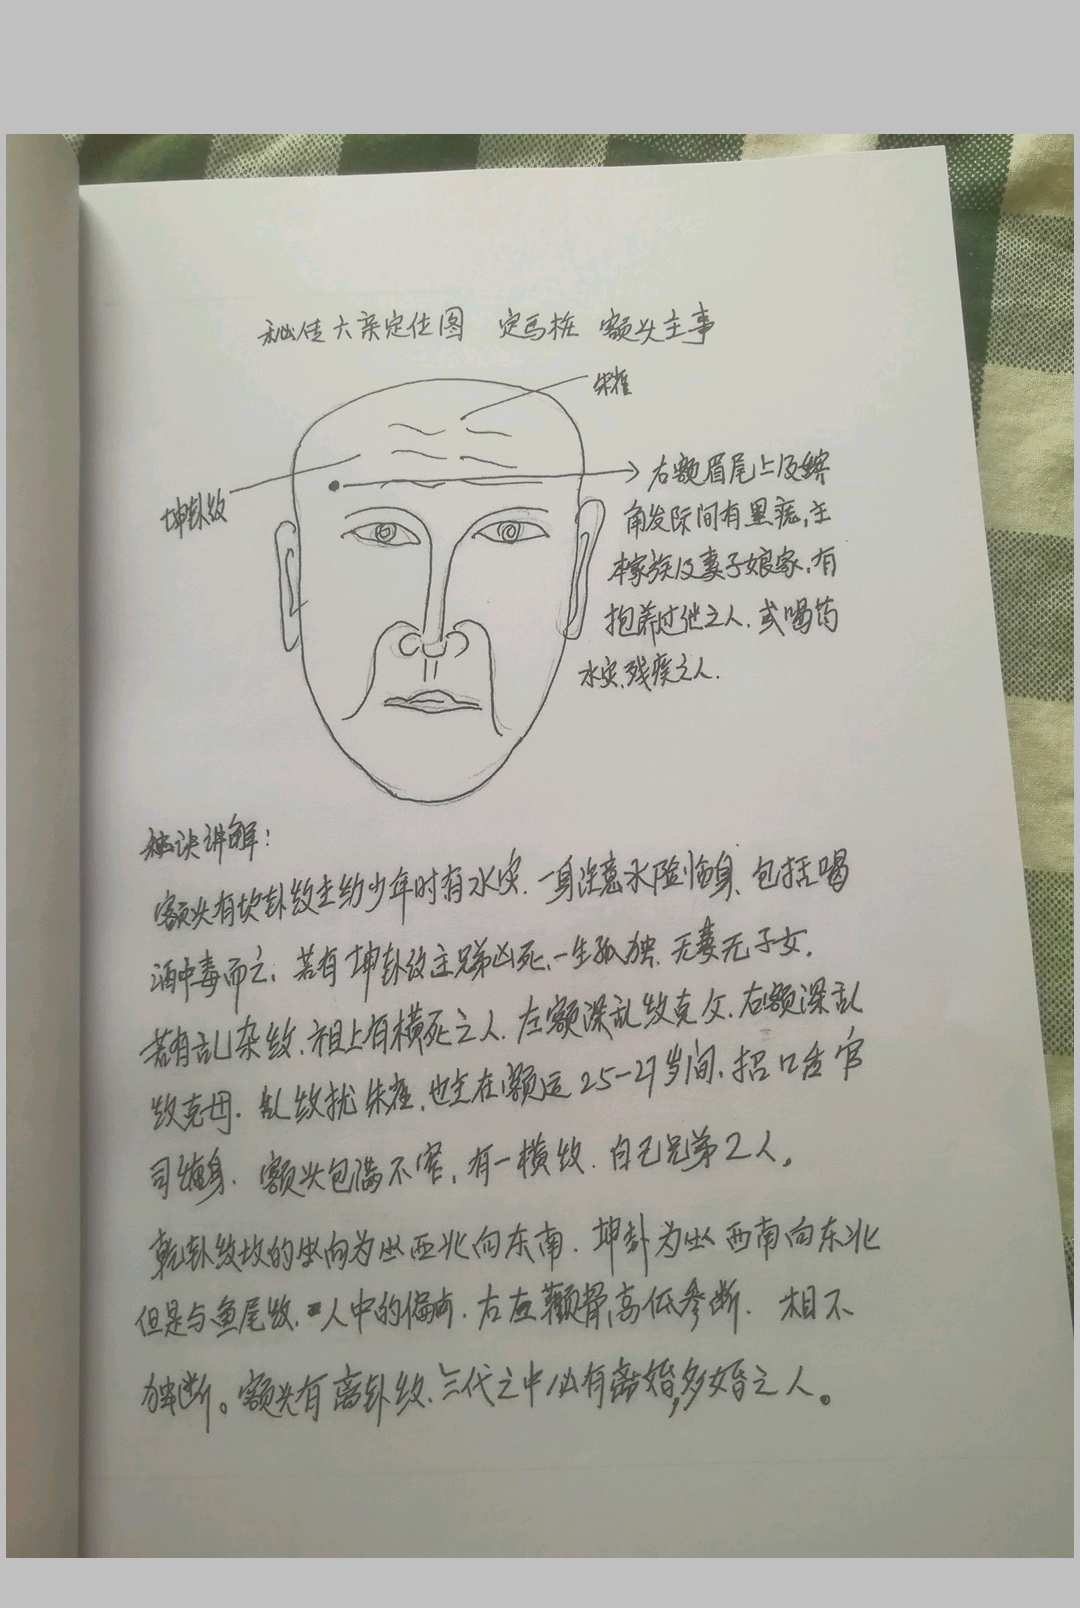 秘传六亲定位图 定马桩 额头主事
朱雀
坤卦纹
右额眉尾上及鬓
角发际间有黑痣,主
本家族及妻子娘家,有
抱养过继之人.或喝药
水灾,残疾之人.
秘诀讲解:
额头有坎卦纹主幼少年时有水灾.一身注意水险临身.包括喝
酒中毒而亡.若有坤卦纹主兄弟凶死,一生孤独.无妻无子女.
若有乱杂纹.祖上有横死之人.左额深乱纹克父.右额深乱
纹克母.乱纹扰朱雀.也主在额运25-27岁间.招口舌官
司缠身.额头包满不窄,有一横纹.自己兄弟2人。
乾卦纹坟的坐向为坐西北向东南.坤卦为坐西南向东北
但是与鱼尾纹.人中的偏向.右左颧骨,高低参断.相不
独断。额头有离卦纹.三代之中必有离婚,多婚之人。